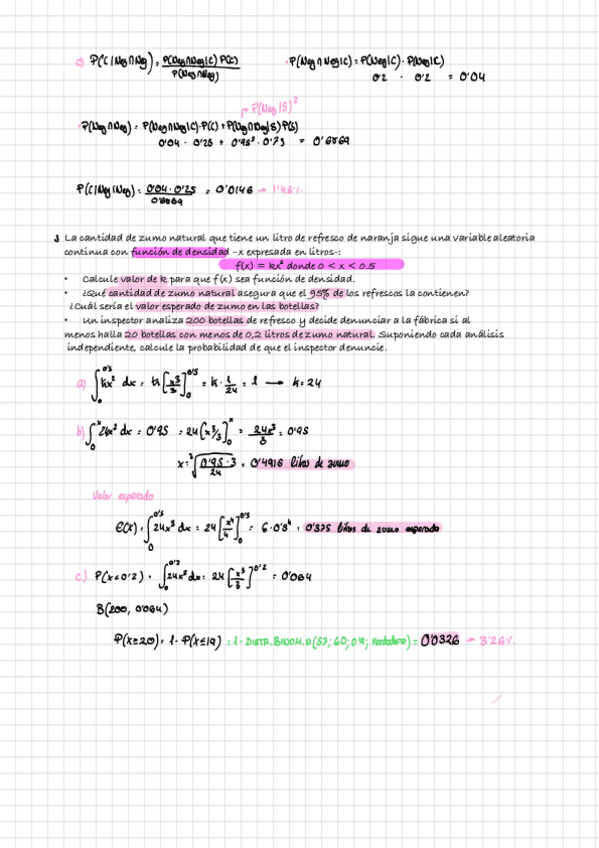 c) P(C|Neg∩Neg) = P(Neg∩Neg|C) P(C) / P(Neg∩Neg) · P(Neg∩Neg|C) = P(Neg|C) · P(Neg|C)
0'2 · 0'2 = 0'04
→ P(Neg|S)²
· P(Neg∩Neg) = P(Neg∩Neg|C)·P(C) + P(Neg∩Neg|S)P(S)
0'04 · 0'25 + 0'95² · 0'75 = 0'6869
P(C|Neg∩Neg) = 0'04 · 0'25 / 0'6869 = 0'0146 → 1'46%
3 La cantidad de zumo natural que tiene un litro de refresco de naranja sigue una variable aleatoria
continua con función de densidad –x expresada en litros-:
f(x) = kx² donde 0 < x < 0.5
• Calcule valor de k para que f(x) sea función de densidad.
• ¿Qué cantidad de zumo natural asegura que el 95% de los refrescos la contienen?
¿Cuál sería el valor esperado de zumo en las botellas?
• Un inspector analiza 200 botellas de refresco y decide denunciar a la fábrica si al
menos halla 20 botellas con menos de 0,2 litros de zumo natural. Suponiendo cada análisis
independiente, calcule la probabilidad de que el inspector denuncie.
a) ∫₀^0'5 kx² dx = k [x³/3]₀^0'5 = k · 1/24 = 1 → k = 24
b) ∫₀^x 24x² dx = 0'95 = 24 [x³/3]₀^x = 24x³/3 = 0'95
x = ³√(0'95 · 3 / 24) = 0'4915 litros de zumo
Valor esperado
E(X) = ∫₀^0'5 24x³ dx = 24 [x⁴/4]₀^0'5 = 6 · 0'5⁴ = 0'375 litros de zumo esperado
c) P(x<0'2) = ∫₀^0'2 24x² dx = 24 [x³/3]^0'2 = 0'064
B(200, 0'064)
P(x≥20) = 1 - P(x≤19) = 1 - DISTR.BINOM.N(57; 60; 0'9; verdadero) = 0'0326 → 3'26%